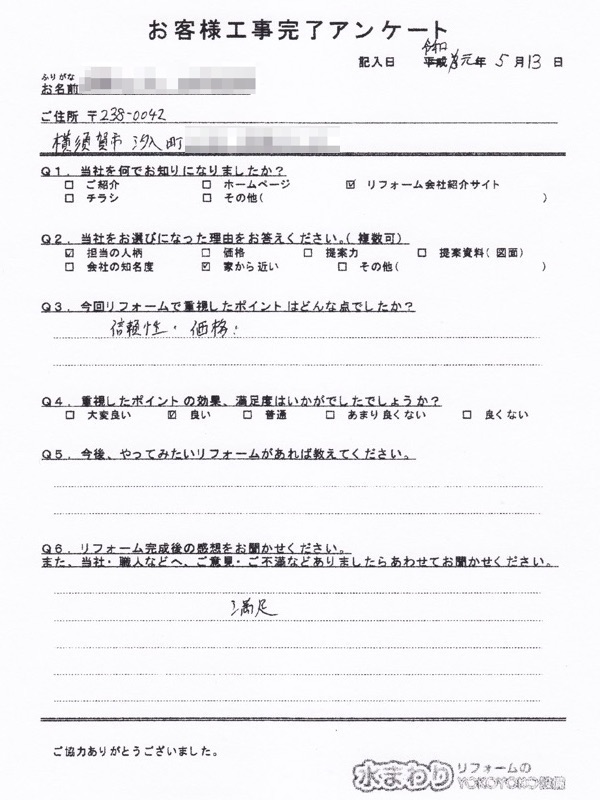 お客様工事完了アンケート
記入日 平成 令和 元年 5月13日
ふりがな
お名前
ご住所 〒238-0042
横須賀市 汐入町
Q1．当社を何でお知りになりましたか？
□ ご紹介 □ ホームページ ☑ リフォーム会社紹介サイト
□ チラシ □ その他( )
Q2．当社をお選びになった理由をお答えください。(複数可)
☑ 担当の人柄 □ 価格 □ 提案力 □ 提案資料(図面)
□ 会社の知名度 ☑ 家から近い □ その他( )
Q3．今回リフォームで重視したポイントはどんな点でしたか？
信頼性・価格
Q4．重視したポイントの効果、満足度はいかがでしたでしょうか？
□ 大変良い ☑ 良い □ 普通 □ あまり良くない □ 良くない
Q5．今後、やってみたいリフォームがあれば教えてください。
Q6．リフォーム完成後の感想をお聞かせください。
また、当社・職人などへ、ご意見・ご不満などありましたらあわせてお聞かせください。
満足
ご協力ありがとうございました。
水まわりリフォームのYOKOYOKO設備